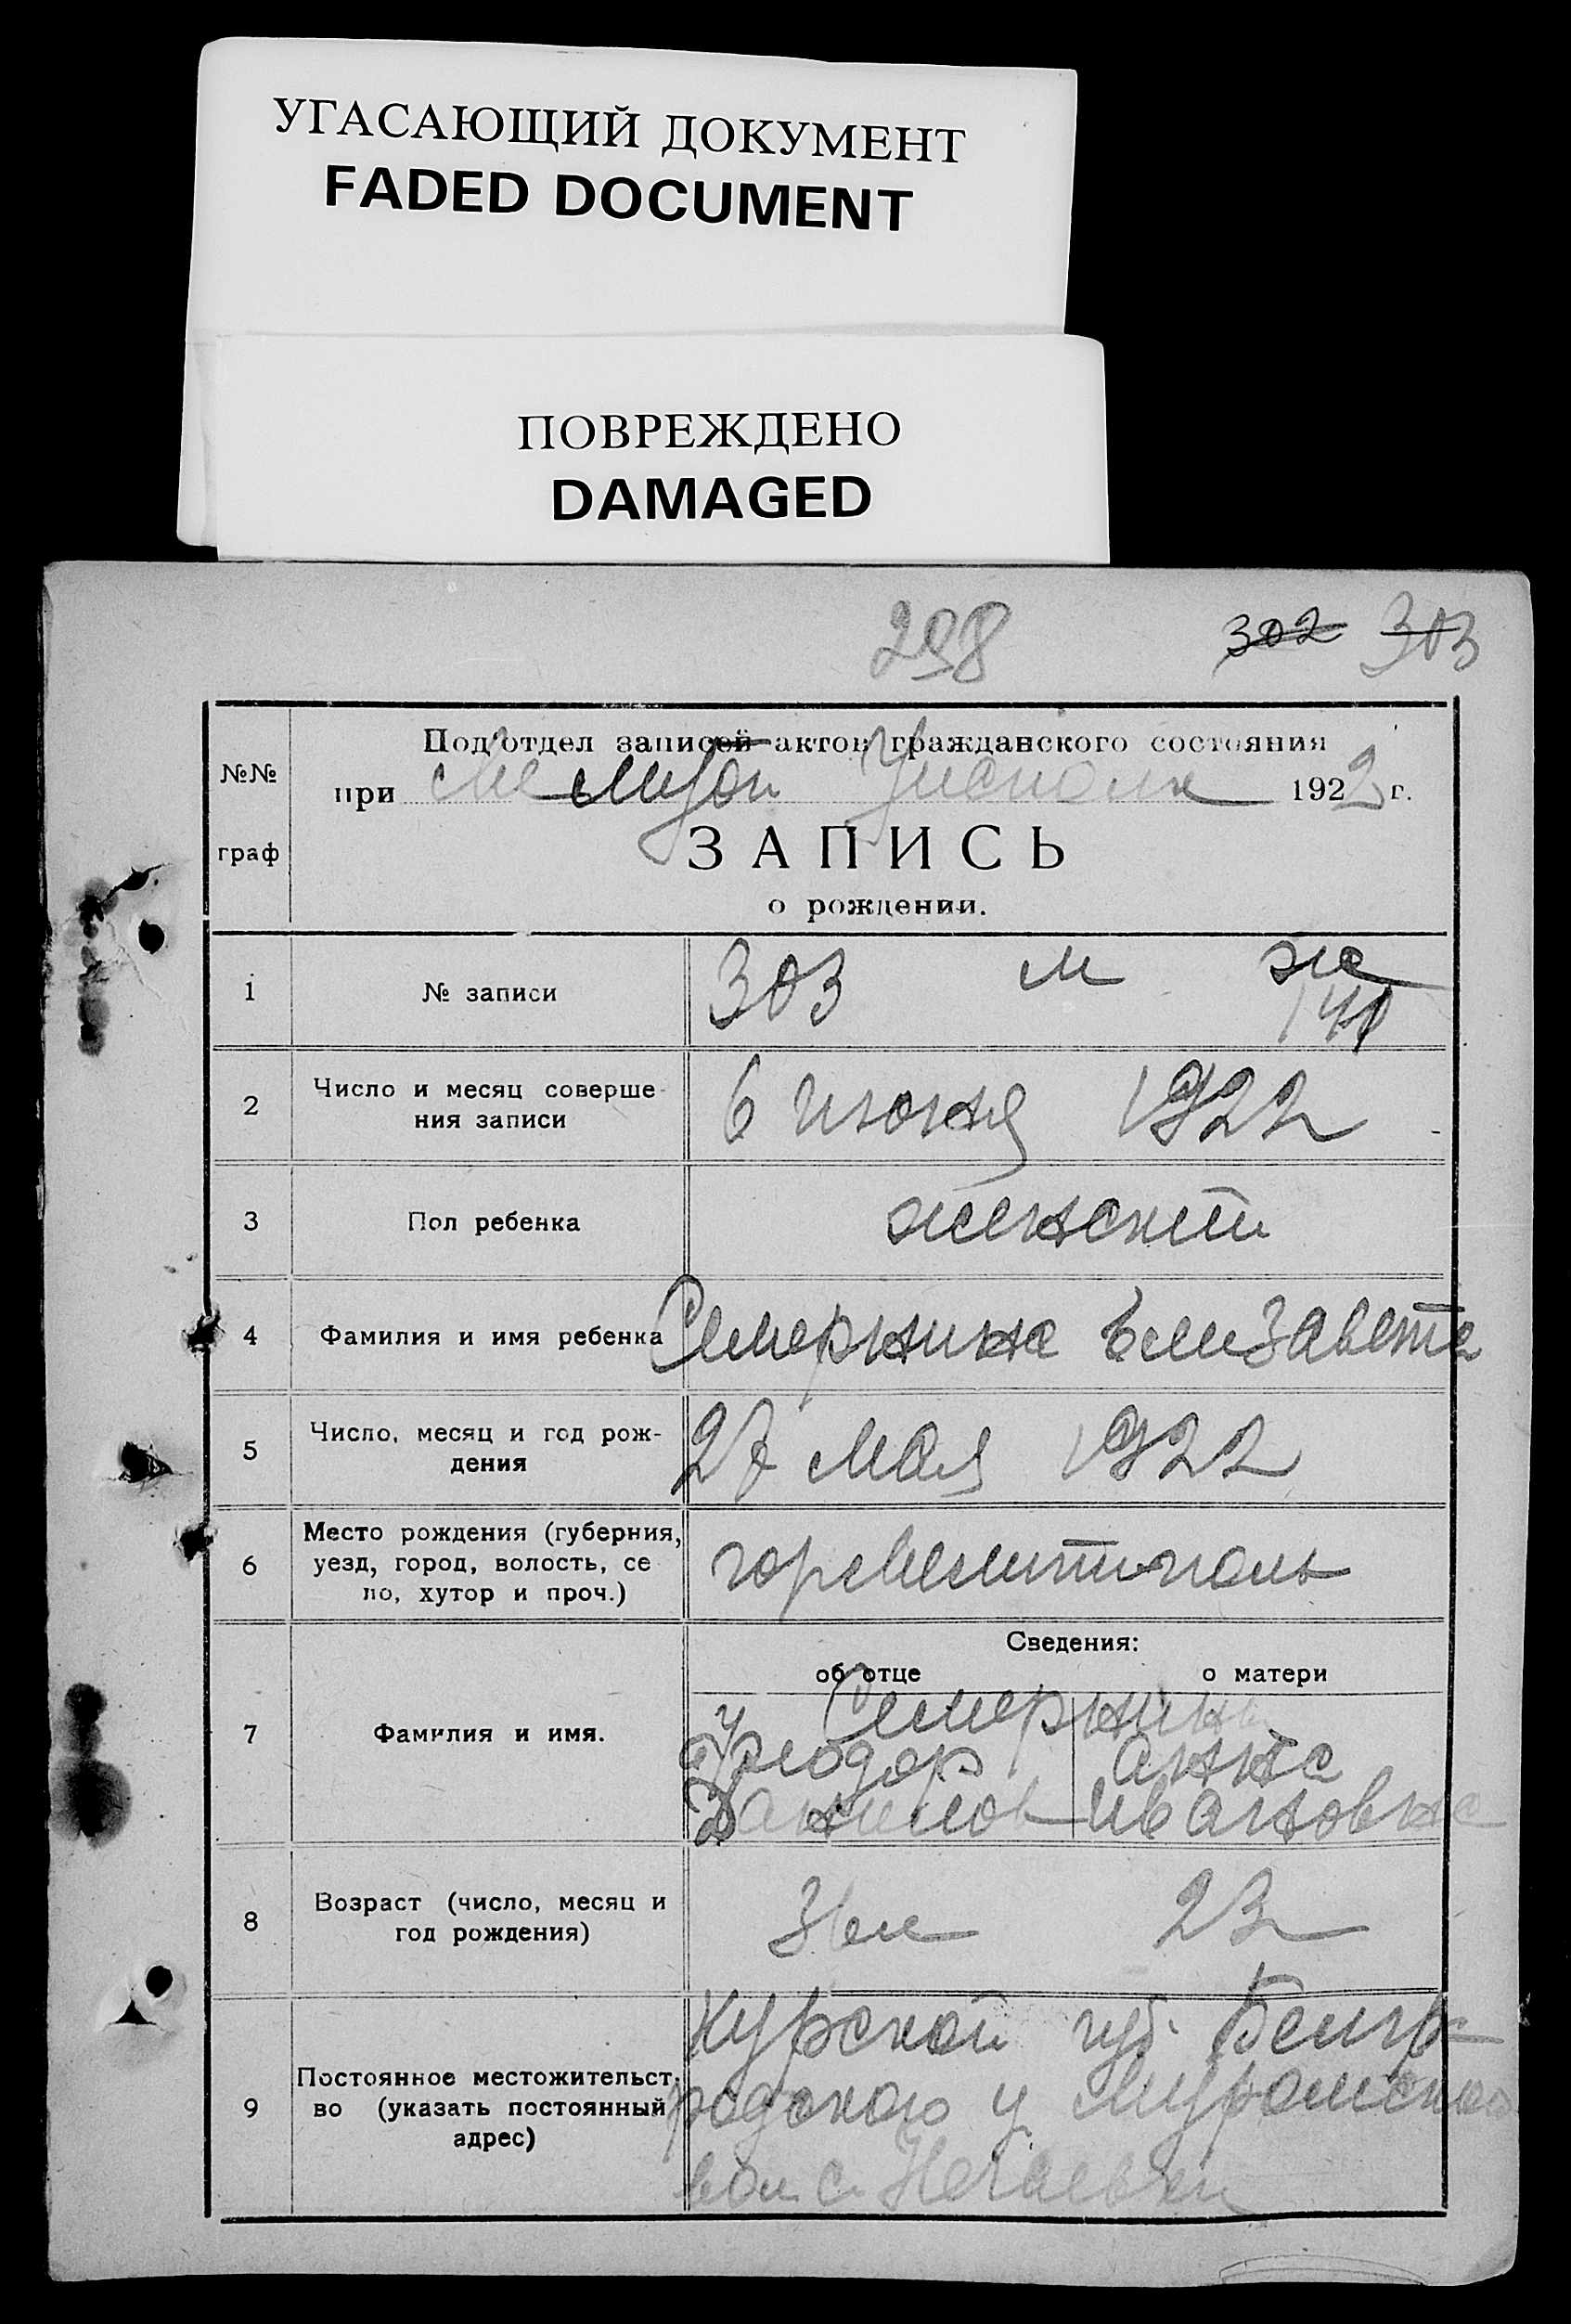 УГАСАЮЩИЙ ДОКУМЕНТ
FADED DOCUMENT
ПОВРЕЖДЕНО
DAMAGED
298 302 303
№№ граф
Подотдел записей актов гражданского состояния
при 1922 г.
ЗАПИСЬ
о рождении.
1 № записи 303 м ж
2 Число и месяц соверше-
ния записи
6 июня 1922
3 Пол ребенка женский
4 Фамилия и имя ребенка Семернина Елизавета
5 Число, месяц и год рож-
дения
27 мая 1922
6 Место рождения (губерния,
уезд, город, волость, се
ло, хутор и проч.)
гор Мелитополь
Сведения:
об отце о матери
7 Фамилия и имя.
Семернин
Феодор Анна
Данилов Ивановна
8 Возраст (число, месяц и
год рождения)
23
9 Постоянное местожительст-
во (указать постоянный
адрес)
Курской губ. Белго
родского у Муромской
вол с. Нечаевки